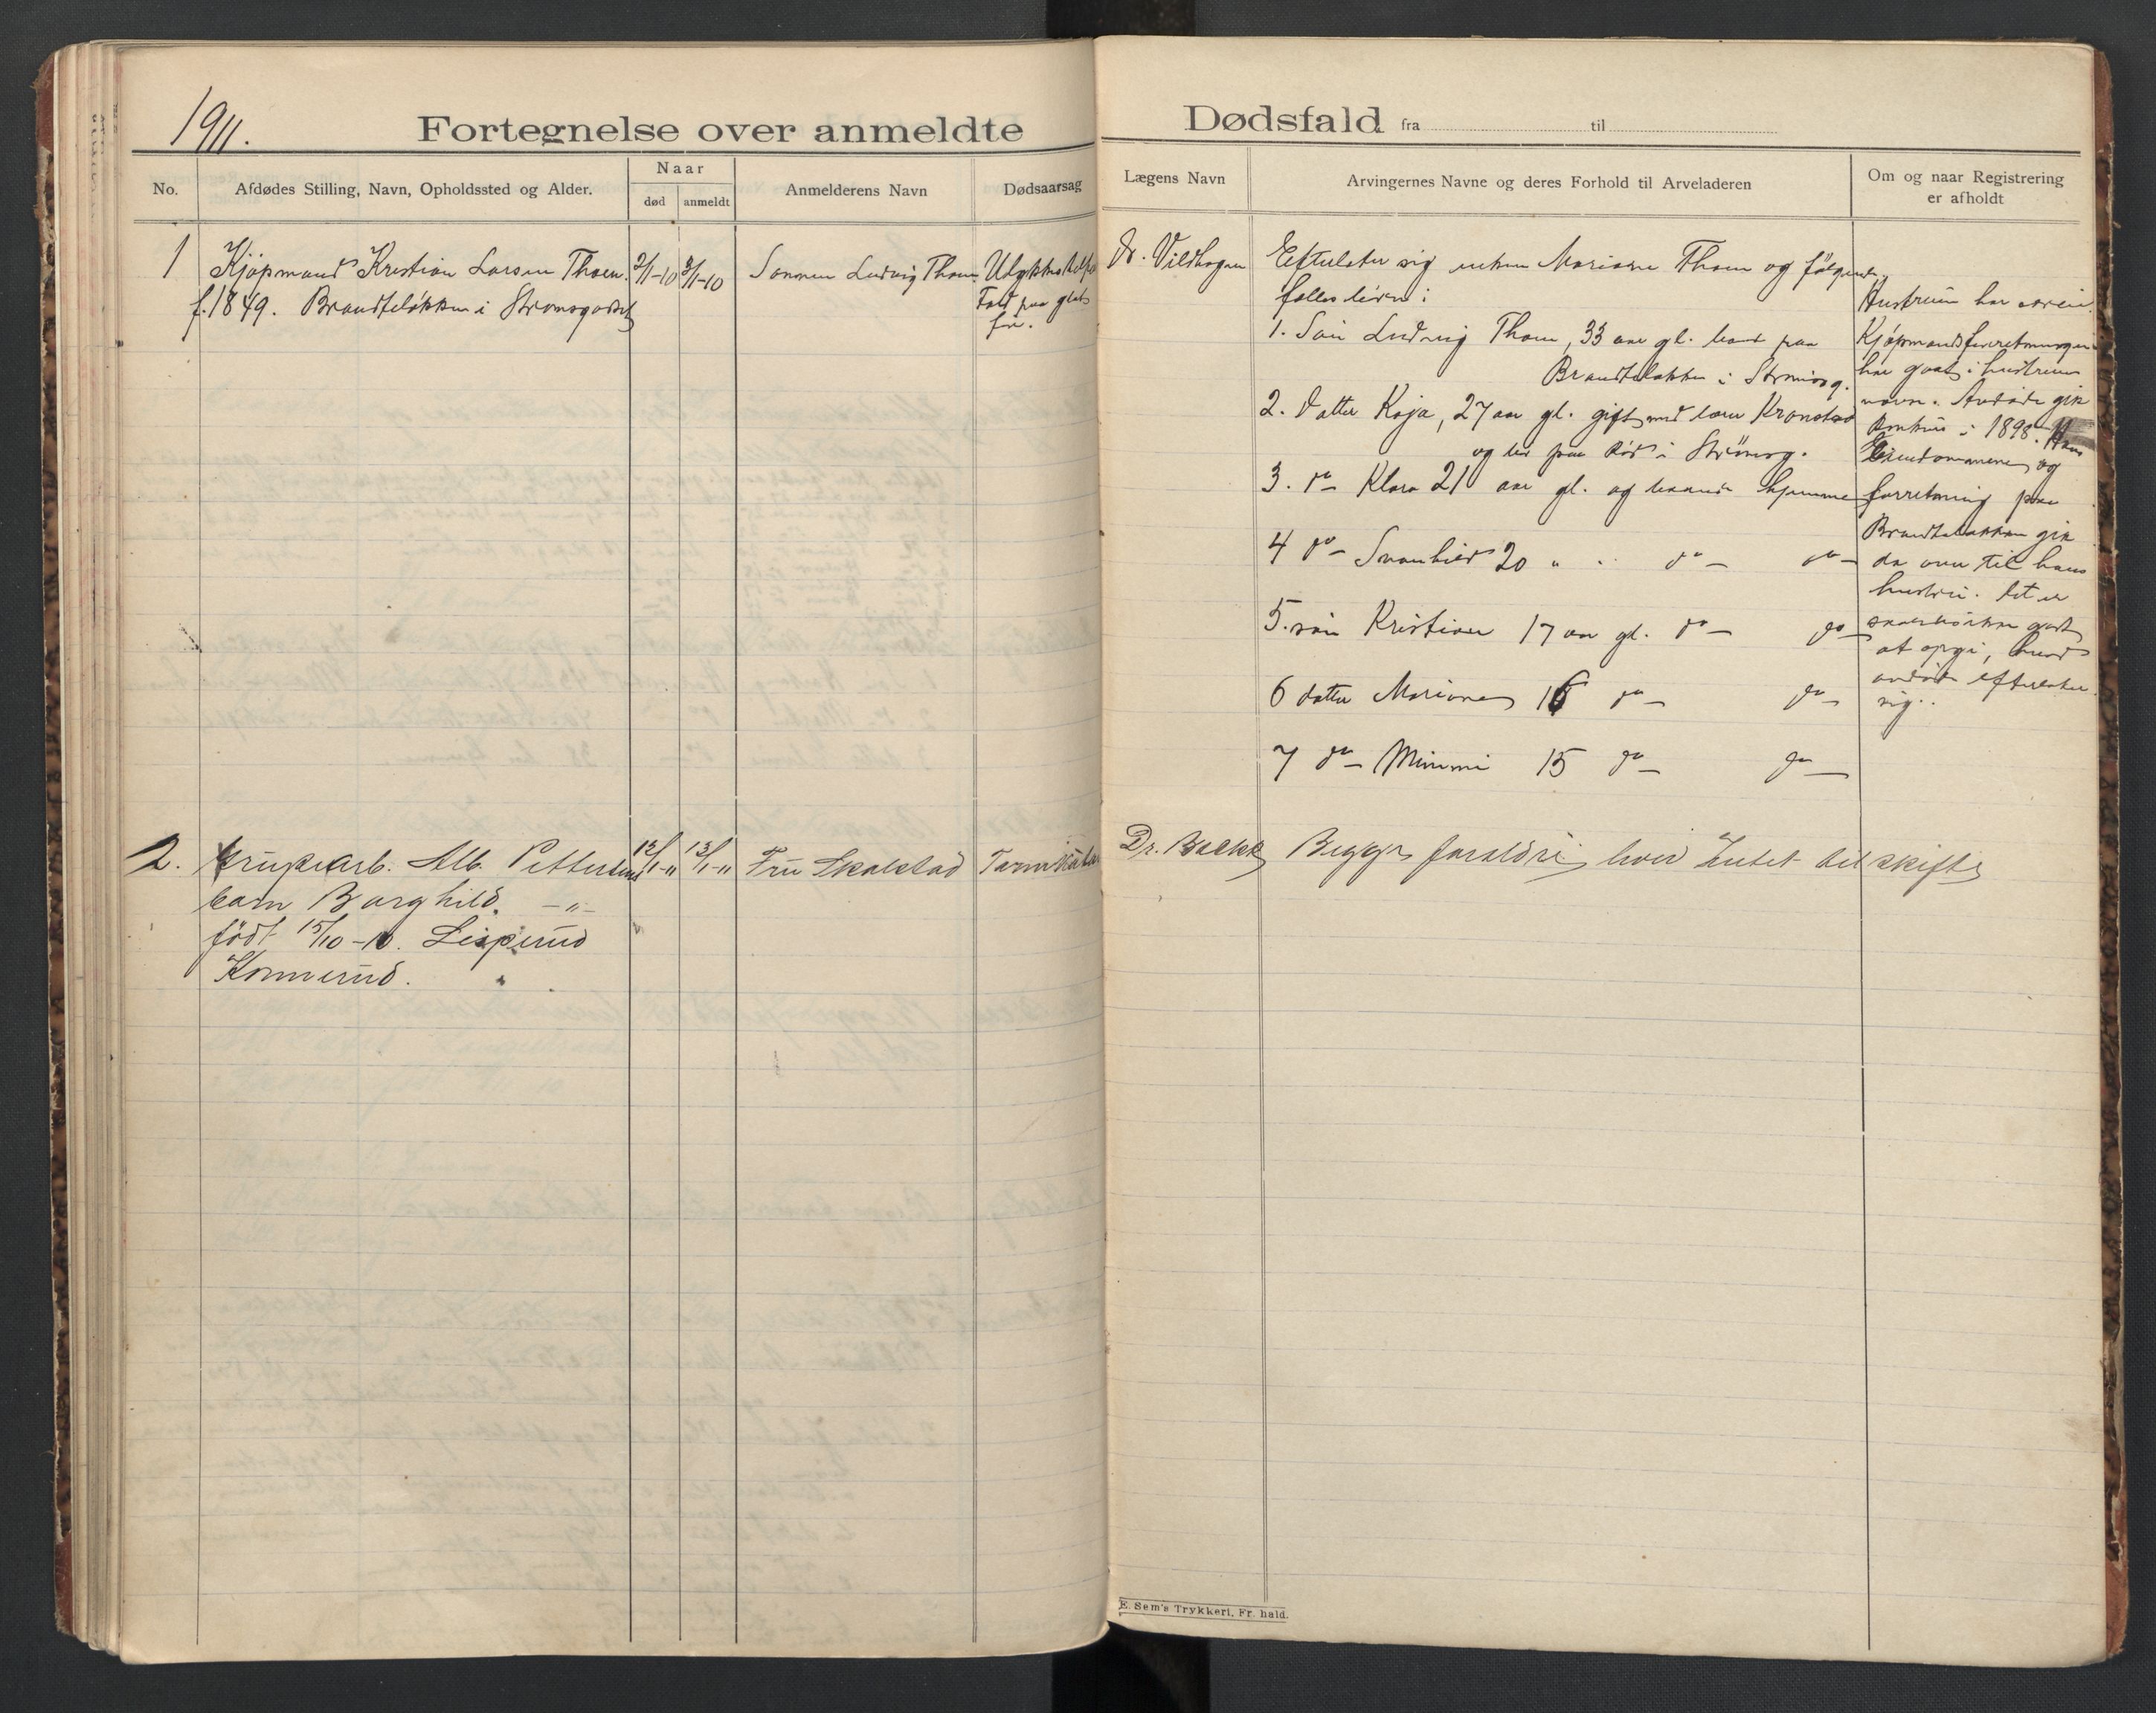 1911.
Fortegnelse over anmeldte
No.
Afdødes Stilling, Navn, Opholdssted og Alder.
Naar
død
anmeldt
Anmelderens Navn
Dødsaarsag
1
Kjøpmand Kristian Larsen Thoen.
f. 1849. Brandteløkken i Strømsgodset
2/1-10
3/1-10
Sønnen Ludvig Thoen
Fald paa glat
føre.
2.
Alb. Pettersens
barn Borghild. -"-
født 15/10-10.
Konnerud.
12/1-11
13/1-11
Fru Skalstad
Dødsfald fra til
Lægens Navn
Arvingernes Navne og deres Forhold til Arveladeren
Om og naar Registrering
er afholdt
Dr. Vildhagen
Efterlater sig enken Mariane Thoen og følgende
felles børn:
1. Søn Ludvig Thoen, 33 aar gl. boende paa
Brandteløkken i Strømsg.
2. Datter Kaja, 27 aar gl. gift med Kronstad
og bor paa i Strømsg.
3. do Klara 21 aar gl. og boende hjemme
4 do Svanhild 20 " " do do
5. søn Kristian 17 aar gl. do do
6 datter Mariane 16 do do
7 do Mimmi 15 do do
Hustruen har
Kjøpmandsforretningen
har gaat i hustruens
navn. Avdøde gik
konkurs i 1898. Hans
Eiendommene og
forretning paa
Brandteløkken gik
da over til hans
hustru. Det er
godt
at opgi, hvad
avdøde efterlater
sig.
Dr. Backe
Begge foreldre lever Intet til skifte
E. Sem's Trykkeri, Fr. hald.